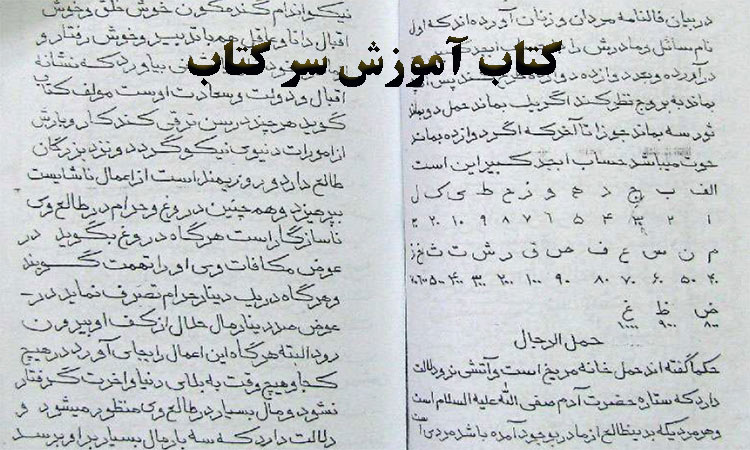 کتاب آموزش سر کتاب
در بیان فالنامه مردان و زنان آورده اند که اول
نام سائل و مادرش را
در آورده و بعد دوازده دوازده
بماند به بروج نظر کند اگر یک بماند حمل دو بماند
ثور سه بماند جوزا تا آخر که اگر دوازده بماند
حوت میباشد حساب ابجد کبیر این است
الف ب ج د ه و ز ح ط ی ک ل
۱ ۲ ۳ ۴ ۵ ۶ ۷ ۸ ۹ ۱۰ ۲۰
م ن س ع ف ص ق ر ش ت ث خ ذ
۴۰ ۵۰ ۶۰ ۷۰ ۸۰ ۹۰ ۱۰۰ ۲۰۰ ۳۰۰ ۴۰۰ ۵۰۰ ۶۰۰
ض ظ غ
۸۰۰ ۹۰۰ ۱۰۰۰
حمل الرجال
حکما گفته اند حمل خانه مریخ است و آتشی نر و دلالت
دارد که ستاره حضرت آدم صفی الله علیه السلام است
و هر مردیکه بدینطالع از مادر بوجود آمده باشد مردی
نیکو اندام گندمگون خوش خلق و خوش
اقبال دانا و عاقل همه با تدبیر و خوش رفتار و
بیاورد که نشانه
اقبال و دولت و سعادت اوست مولف کتاب
گوید هر چند در سن ترقی کند کار و بارش
از امورات دنیوی نیکو گردد و نزد بزرگان
طالع دارد و روزیمند است از اعمال ناشایست
بپرهیزد و همچنین دروغ و حرام در طالع وی
ناسازگار است هر گاه دروغ بگوید در
عوض مکافات وی او را تهمت گویند
و هر گاه در یک دینار حرام تصرف نماید در
عوض صد دینار مال حلال از کف او بیرون
رود البته هر گاه این اعمال را بجای آورد در هیچ
کجا و هیچ وقت به بلای دنیا و آخرت گرفتار
نشود و مال بسیار در طالع وی منظور میشود و
دلالت دارد که سه بار مال بسیار برا و برسد